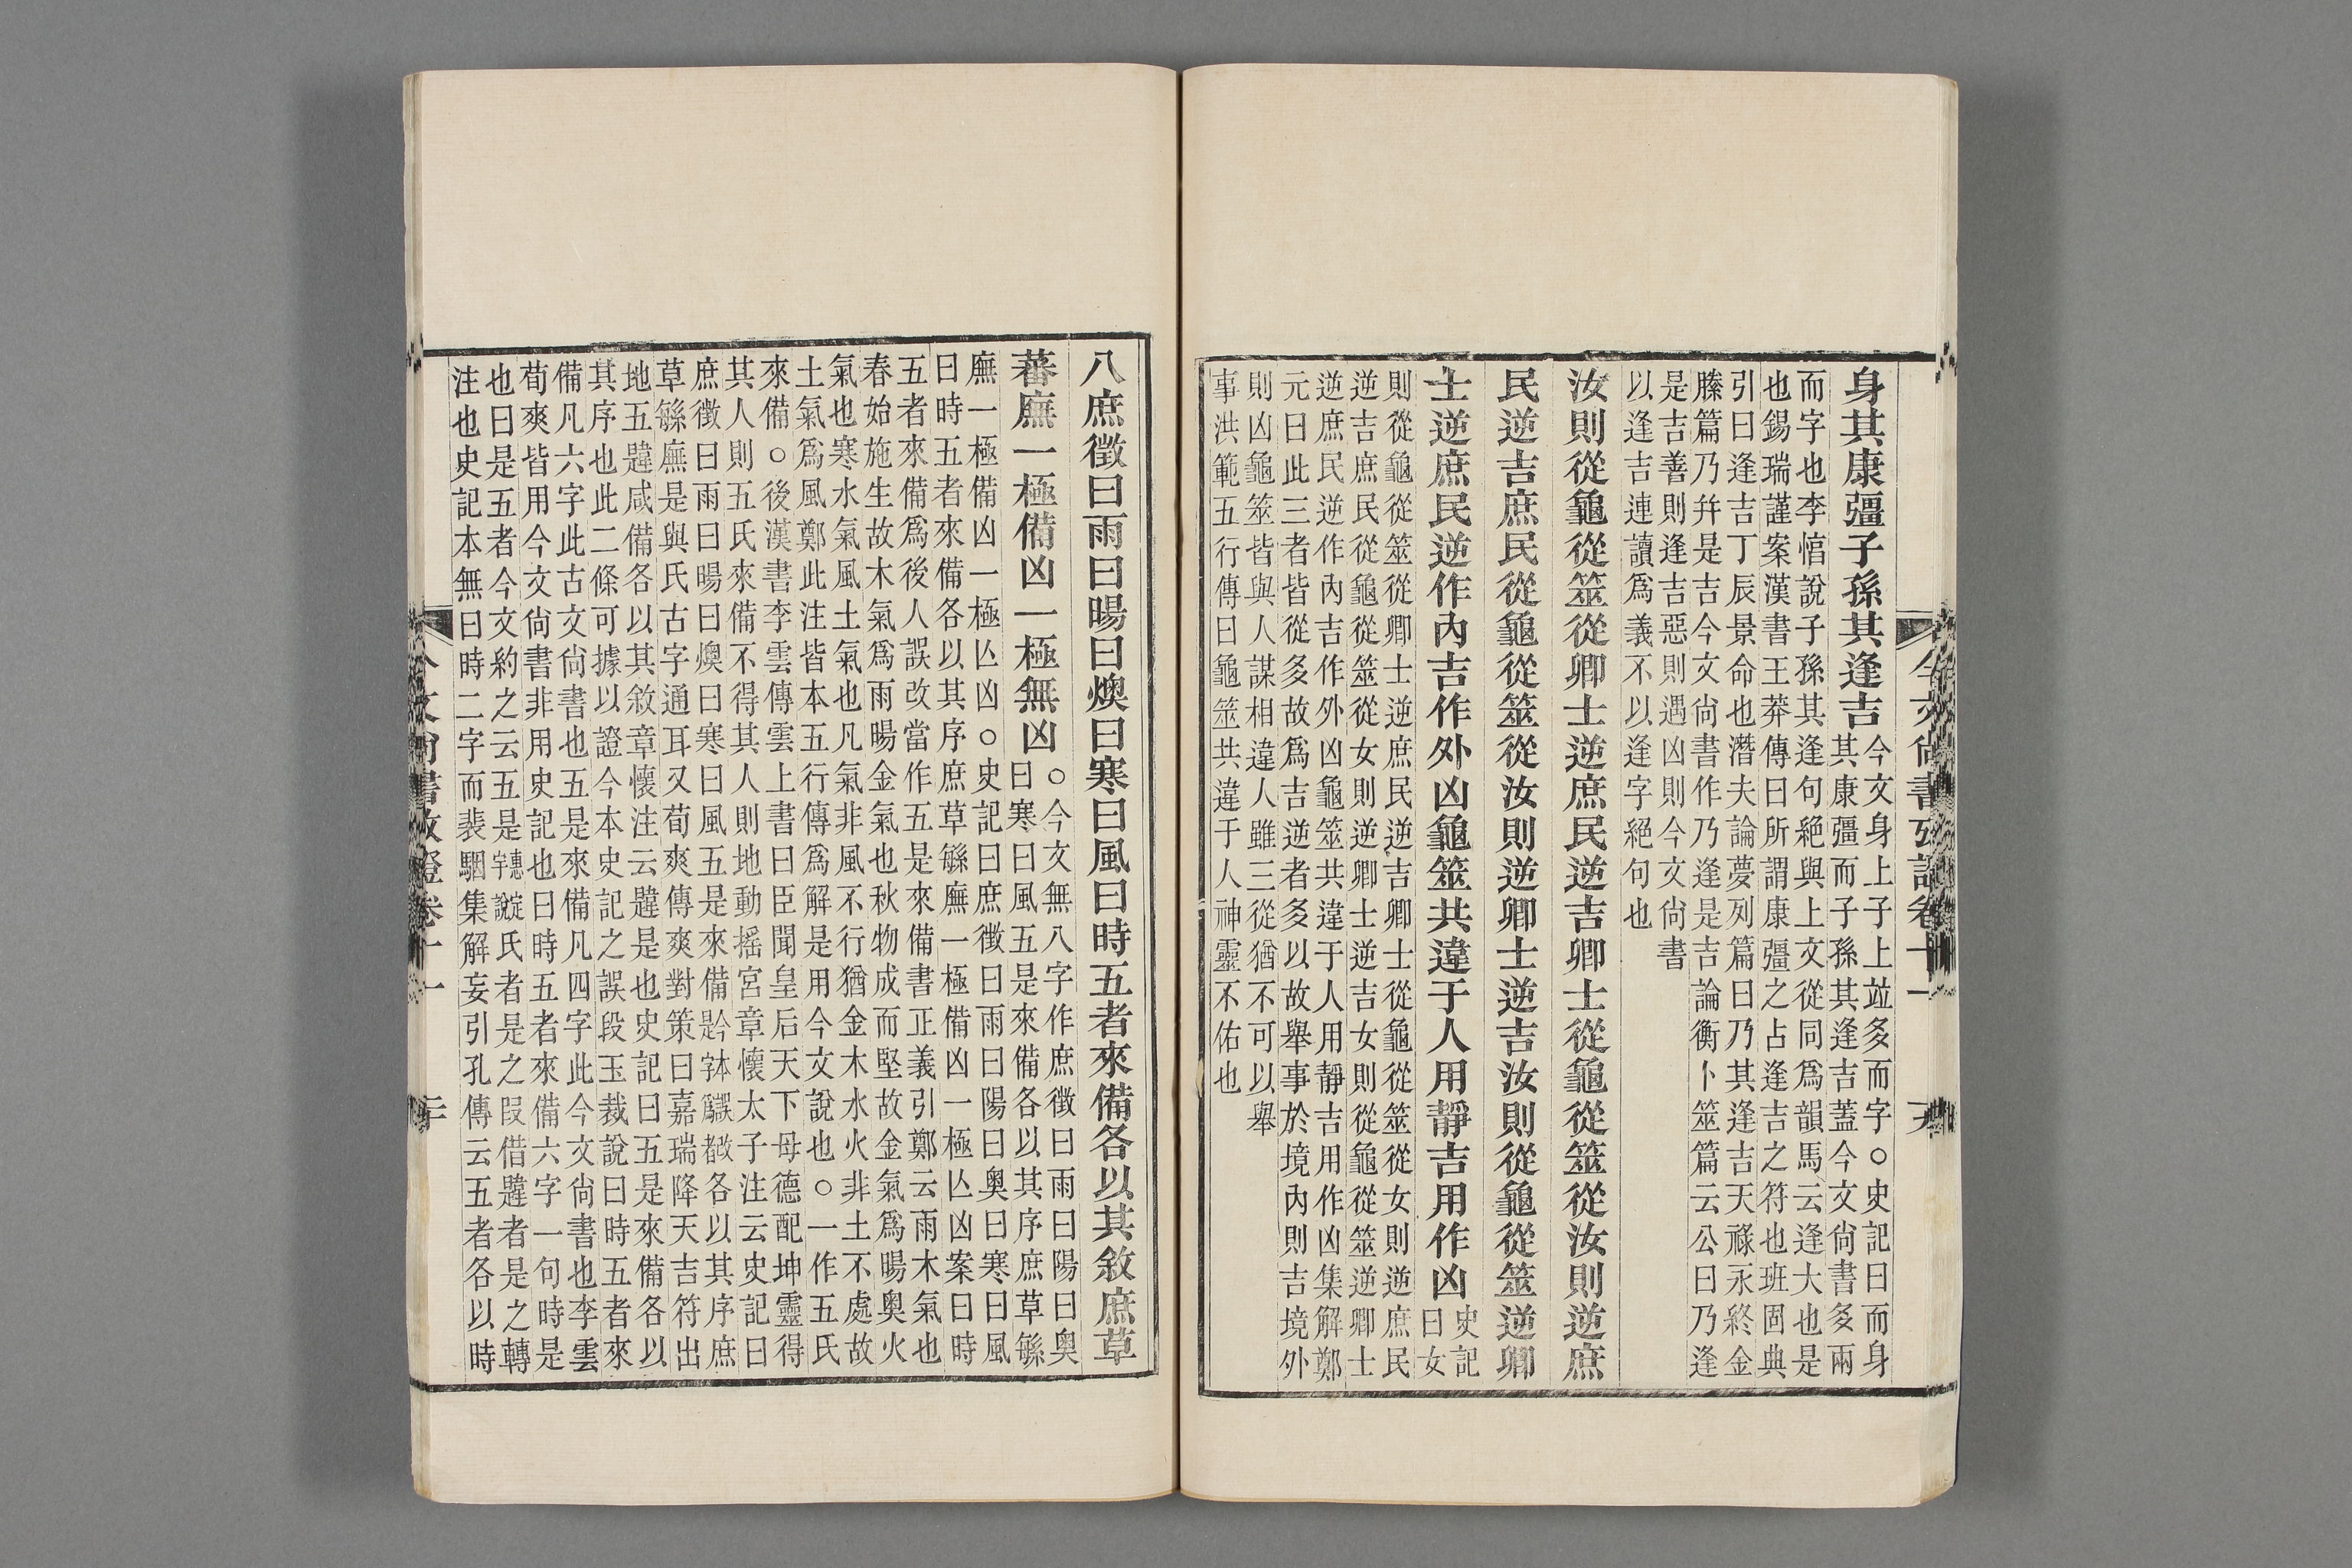 身其康彊子孫其逢吉
今文身上子上竝多而字○史記曰而身
其康彊而子孫其逢吉蓋今文尙書多兩
而字也李惇說子孫其逢句絕與上文從同爲韻馬云逢大也是
也錫瑞謹案漢書王莽傳曰所謂康彊之占逢吉之符也班固典
引曰逢吉丁辰景命也潛夫論夢列篇曰乃其逢吉天祿永終金
縢篇乃幷是吉今文尙書作乃逢是吉論衡卜筮篇云公曰乃逢
是吉善則逢吉惡則遇凶則今文尙書
以逢吉連讀爲義不以逢字絕句也
汝則從龜從筮從卿士逆庶民逆吉卿士從龜從筮從汝則逆庶
民逆吉庶民從龜從筮從汝則逆卿士逆吉汝則從龜從筮逆卿
士逆庶民逆作內吉作外凶龜筮共違于人用靜吉用作凶
史記
曰女
則從龜從筮從卿士逆庶民逆吉卿士從龜從筮從女則逆庶民
逆吉庶民從龜從筮從女則逆卿士逆吉女則從龜從筮逆卿士
逆庶民逆作內吉作外凶龜筮共違于人用靜吉用作凶集解鄭
元曰此三者皆從多故爲吉逆者多以故舉事於境內則吉境外
則凶龜筮皆與人謀相違人雖三從猶不可以舉
事洪範五行傳曰龜筮共違于人神靈不佑也
今文尙書攷證卷十一
八庶徵曰雨曰暘曰燠曰寒曰風曰時五者來備各以其敘庶草
蕃廡一極備凶一極無凶
○今文無八字作庶徵曰雨曰陽曰奥
曰寒曰風五是來備各以其序庶草緐
廡一極備凶一極亾凶○史記曰庶徵曰雨曰陽曰奥曰寒曰風
曰時五者來備各以其序庶草緐廡一極備凶一極亾凶案曰時
五者來備爲後人誤改當作五是來備書正義引鄭云雨木氣也
春始施生故木氣爲雨暘金氣也秋物成而堅故金氣爲暘奥火
氣也寒水氣風土氣也凡氣非風不行猶金木水火非土不處故
土氣爲風鄭此注皆本五行傳爲解是用今文說也○一作五氏
來備○後漢書李雲傳雲上書曰臣聞皇后天下母德配坤靈得
其人則五氏來備不得其人則地動搖宮章懷太子注云史記曰
庶徵曰雨曰暘曰燠曰寒曰風五是來備各以其序庶
草緐廡是與氏古字通耳又荀爽傳爽對策曰嘉瑞降天吉符出
地五韙咸備各以其敘章懷注云韙是也史記曰五是來備各以
其序也此二條可據以證今本史記之誤段玉裁說曰時五者來
備凡六字此古文尙書也五是來備凡四字此今文尙書也李雲
荀爽皆用今文尙書非用史記也曰時五者來備六字一句時是
也曰是五者今文約之云五是氏者是之叚借韙者是之轉
注也史記本無曰時二字而裴駰集解妄引孔傳云五者各以時
今文尙書攷證卷十一
二十